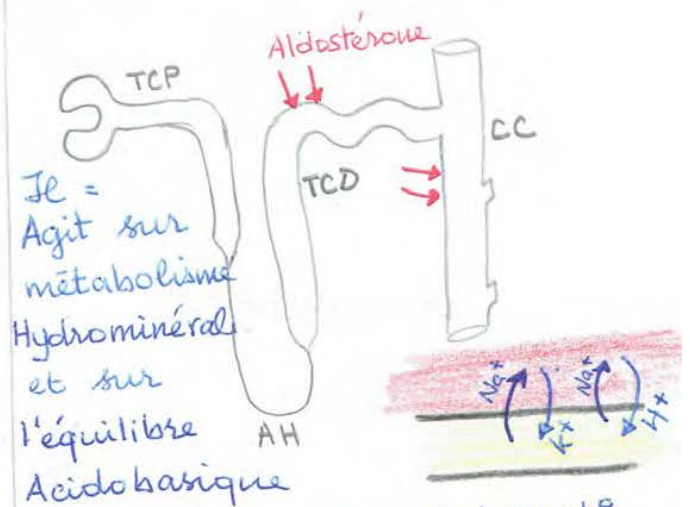 Aldostérone
TCP
CC
TCD
Il =
Agit sur
métabolisme
Hydrominéral
et sur
l'équilibre
Acidobasique
AH
Na+
K+
Na+
H+